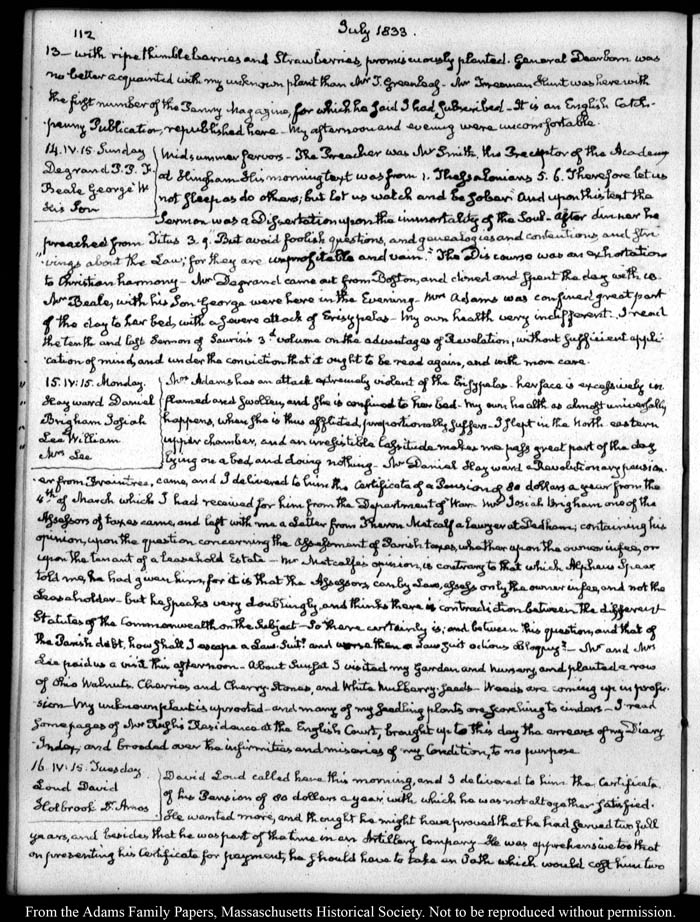 112
July 1833.
13 - with ripe thimbleberries and Strawberries, promiscuously planted. General Dearborn was
no better acquainted with my unknown plant than Mr T. Greenleaf - Mr Freeman Hunt was here with
the first number of the Penny Magazine, for which he said I had subscribed - It is an English Catch-
penny Publication, republished here - My afternoon and evening were uncomfortable
14. IV. 15. Sunday
Degrand P. P. F.
Beale George W
His Son
Midsummer fervors - The Preacher was Mr Smith, the Preceptor of the Academy
at Hingham His morning text was from 1. Thessalonians 5. 6. Therefore let us
not sleep as do others; but let us watch and be sober. And upon this text the
Sermon was a Dissertation upon the immortality of the Soul - After dinner he
preached from Titus 3. 9. "But avoid foolish questions, and genealogies and contentions, and stri-
"vings about the Law; for they are unprofitable and vain." The Discourse was an exhortation
to Christian harmony - Mr Degrand came out from Boston, and dined and spent the day with us.
Mr Beale, with his Son George were here in the Evening - Mrs Adams was confined great part
of the day to her bed, with a severe attack of Erisypelas - My own health very indifferent. I read
the tenth and last Sermon of Saurin's 3d volume on the advantages of Revelation, without sufficient appli-
cation of mind, and under the conviction that it ought to be read again, and with more care
15. IV: 15. Monday.
Hayward Daniel
Brigham Josiah
Lee William
Mrs Lee
Mrs Adams has an attack extremely violent of the Erisypelas - her face is excessively in-
flamed and swollen, and she is confined to her bed - My own health as almost universally
happens, when she is thus afflicted, proportionally suffers - I slept in the North eastern
upper chamber, and an irresistible lassitude makes me pass great part of the day
lying on a bed, and doing nothing - Mr Daniel Hayward a Revolutionary pension-
er from Braintree, came, and I delivered to him the Certificate of a Pension of 80 dollars a year from the
4th of March which I had received for him from the Department of War. Mr Josiah Brigham one of the
Assessors of taxes came, and left with me a Letter from Theron Metcalf a Lawyer at Dedham; containing his
opinion, upon the question concerning the assessment of Parish taxes, whether upon the owner in fee, or
upon the tenant of a leasehold Estate - Mr Metcalf's opinion, is contrary to that which Alpheus Spear
told me, he had given him, for it is that the Assessors, can by Law, assess only the owner in fee, and not the
Leaseholder - but he speaks very doubtingly, and thinks there is contradiction between the different
Statutes of the Commonwealth on the Subject - So there certainly is; and between this question, and that of
the Parish debt, how shall I escape a Law-Suit? and worse than a Law suit odious obloquy? - Mr and Mrs
Lee paid us a visit this afternoon - About Sunset I visited my Garden and Nursery, and planted a row
of Ohio Walnuts. Cherries and Cherry Stones, and White Mulberry seeds - Weeds are coming up in profu-
sion - My unknown plant is uprooted - and many of my seedling plants are scorching to cinders - I read
some pages of Mr Rush's Residence at the English Court, brought up to this day the arrears of my Diary
Index, and brooded over the infirmities and miseries of my Condition, to no purpose
16. IV: 15. Tuesday
Loud David
Holbrook Dr. Amos
David Loud called here this morning, and I delivered to him the Certificate
of his Pension of 80 dollars a year with which he was not altogether satisfied.
He wanted more, and thought he might have proved that he had served two full
years, and besides that he was part of that time in an Artillery Company. He was apprehensive too that
on presenting his Certificate for payment, he should have to take an Oath which would cost him two
From the Adams Family Papers, Massachusetts Historical Society. Not to be reproduced without permission.